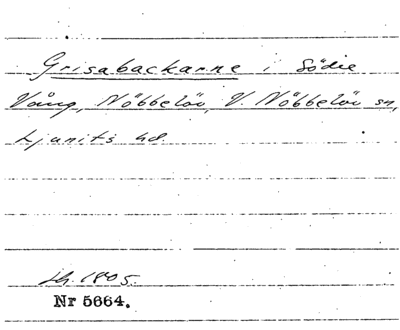 Grisabackarne i Södre
Vång, Nöbbelöv, V. Nöbbelöv sn,
Ljunits hd
sk. 1805.
Nr 5664.